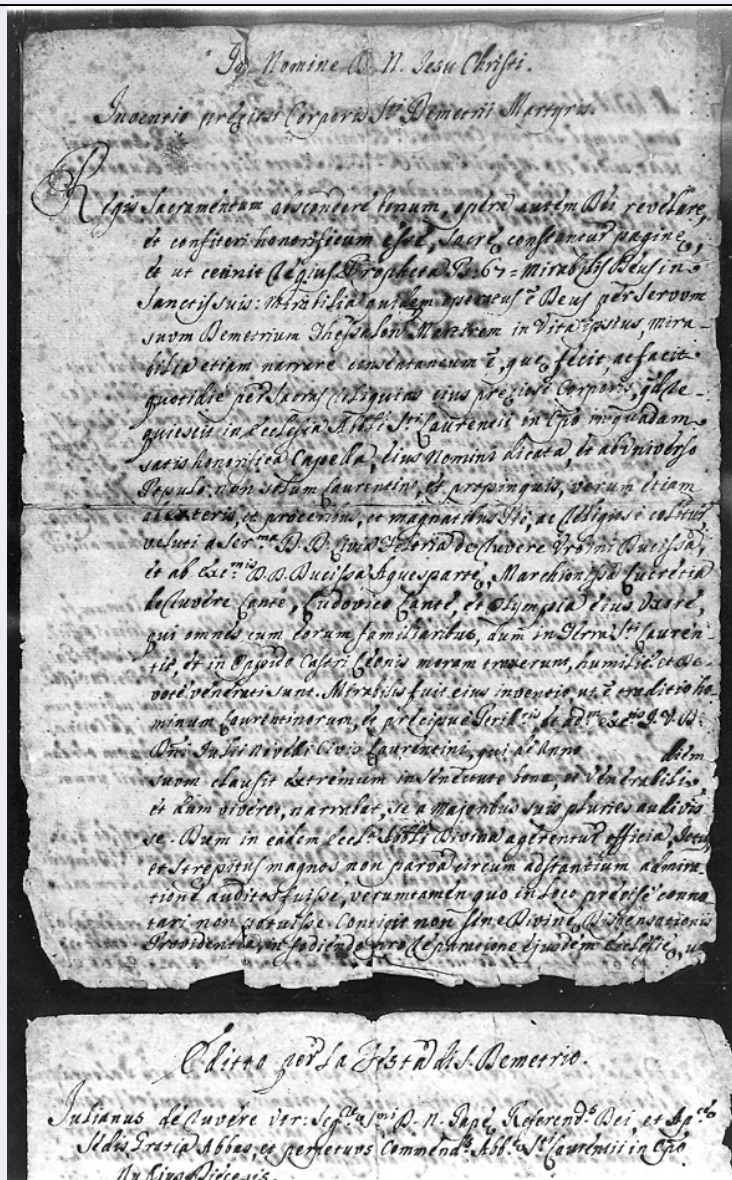 In Nomine D. N. Jesu Christi.
Inventio prețiosi Corporis Sti Demetrii Martyris.
Regis Sacramentum abscondere bonum, opera autem Dei revelare,
et confiteri honorificum esse, sacre constantur pagine,
et ut cecinit Regius Propheta Ps. 67 = mirabilis Deus in
Sanctis suis: Mirabilia quidem operatus e Deus per servom
suom Demetrium Thessalon Martirem in vita ipsius, mira-
bilia etiam narrare consentaneum e, que fecit, ac facit
quotidie per Sacras Reliquias eius preziosi Corporis, qd re-
quiescit in Ecclesia Abbli Sti Laurentii in Cpo in quadam
satis honorifica Capella, eius Nomini dicata, et ab universo
Populo non solum Laurentino, et propinquis, verum etiam
ab exteris, et proceribus, et magnatibus pie, ac Religiose colitur,
veluti a Ser.ma D. D. Livia Feltria de Ruvere Urbini Ducissa,
et ab Exc.mis D. D. Ducissa Aquesparte, Marchionissa Lucretia
de Ruvere Lante, Ludovico Lante, et Olympia eius Uxore,
qui omnes cum eorum familiaribus, dum in Terra Sti Lauren-
tii, et in Oppido Castri Leonis moram traxerunt, humilie et de-
vote venerati sunt. Mirabilis fuit eius inventio ut e traditio ho-
minum Laurentinorum, et precipue
Dni Julii Civis Laurentini, qui de Anno diem
suom clausit extremum in senectute bona, et venerabili,
et dum viveret, narrabat, se a majoribus suis pluries audivis
se. Dum in eadem Eccl.a Abbli Divina agerentur officia, Ictus,
et strepitus magnos non parva circum adstantium admira-
tione auditos fuisse, verumtamen quo in loco precise conno
tari non potuisse. Contigit non sine Divine Dispensationis
Providentia, in fodiendo pro reparatione ejusdem Ecclesie, ut
Editto per la Festa di S. Demetrio.
Julianus de Ruvere utr: Sig.re D. N. Pape Referend.s Dei, et Ap.ce
Sedis Gratia Abbas, et perpetuus Commend.s Abb.e Sti Laurentii in Cpo
Diecesis.